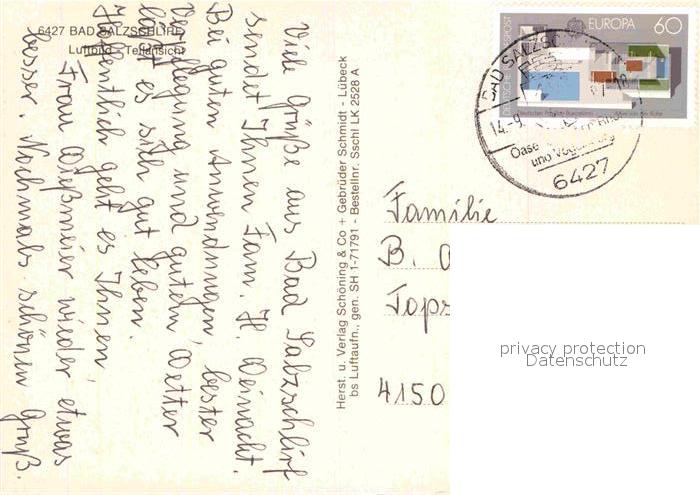 6427 BAD SALZSCHLIRF
Luftbild Teilansicht
Viele Grüße aus Bad Salzschlirf
sendet Ihnen Fam. H. Weinacht.
Bei guten Anwendungen, bester
Verpflegung und gutem Wetter
läßt es sich gut leben.
Hoffentlich geht es Ihnen,
Frau Wißmeier wieder etwas
besser. Nochmals schönen Gruß.
Herst. u. Verlag Schöning & Co + Gebrüder Schmidt - Lübeck
bs Luftaufn., gen. SH 1-71791 - Bestellnr. Sschl LK 2528 A
EUROPA 60
BAD SALZSC
14.-9
Oase
und
6427
Familie
B.
Topz
4150
privacy protection
Datenschutz